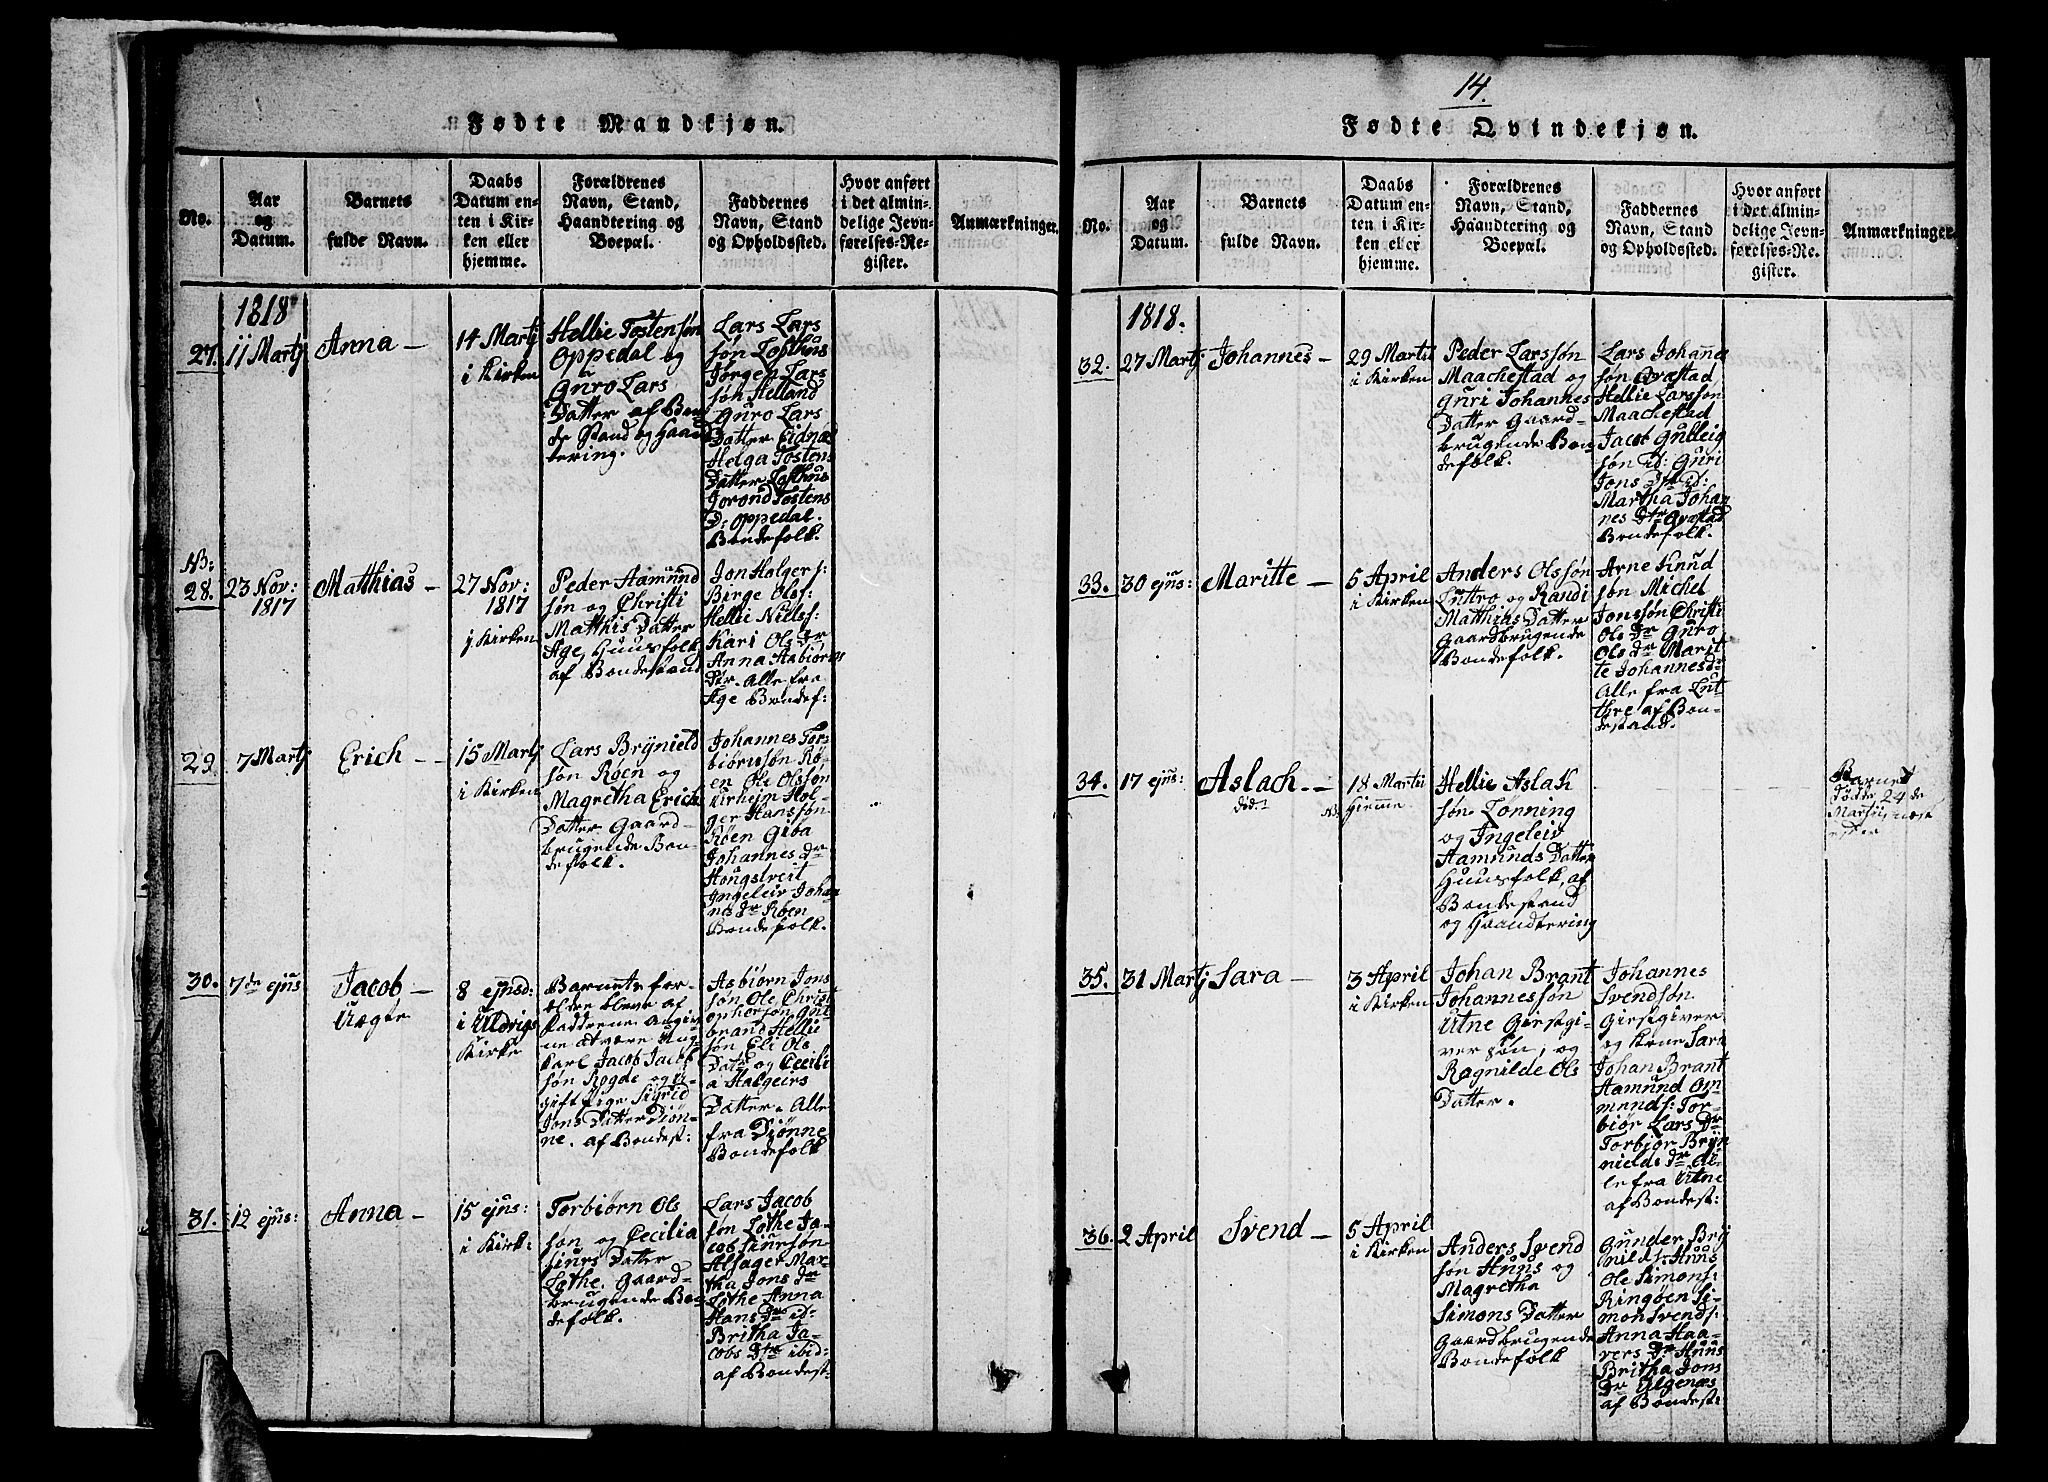 Fødte Mandkjøn.
No.
Aar
og
Datum.
Barnets
fulde Navn.
Daabs
Datum en-
ten i Kir-
ken eller
hjemme.
Forældrenes
Navn, Stand,
Haandtering og
Boepæl.
Faddernes
Navn, Stand
og Opholdssted.
Hvor anført
i det almin-
delige Jevn-
førelses-Re-
gister.
Anmærkninger.
1818
27.
11 Martj
Anna -
14 Martj
i Kirken
Hellie Tostensøn
Oppedal og
Guro Lars
Datter af Bon
de Stand og Haand
tering.
Lars Lars
søn Lofthus
Jørgen Lars
søn Helland
Guro Lars
Datter Eidnæs
Helga Tostens
Datter Lofthus
Jorond Tostens
D: Oppedal.
Bondefolk.
NB:
28.
23 Nov:
1817
Matthias -
27 Nov:
1817
i Kirken
Peder Aamund
søn og Christi
Matthis Datter
Age, Huusfolk
af Bondestand
Jon Halgers:
Birge Olsf:
Hellie Nillsf:
Kari Ols dr
Anna Asbiørns
dtr. Alle fra
Age Bondef:
29.
7 Martj
Erich -
15 Martj
i Kirken
Lars Brynield
søn Røen og
Magretha Erich
Datter Gaard-
brugende Bon-
defolk.
Johannes Tor-
biørnsøn Rø-
en Ole Olssøn
Urheim Hol-
ger Hanssøn
Røen Giba
Johannes dr
Hougstveit
Ingeleiv Johan
nes dr Røen
Bondefolk.
30.
7de ejus
Jacob -
Uægte
8 ejusd:
i Uldrigs
Kirke
Barnets for-
ældre bleve af
Faddrene Angiv-
ne at være Ung-
karl Jacob Jacob
søn Rogde og u-
gift Pige Sigrid
Jons Datter Diøn-
ne. af Bondest:
Asbiørn Jons
søn Ole Christ
ophersøn Gut
brand Hellie
søn Eli Ols
Datr og Cecili
a Halgeirs
Datter. Alle
fra Diønne
Bondefolk
31.
12 ejus:
Anna -
15 ejus:
i Kirk:
Torbiørn Ols
søn og Cecilia
Siurs Datter
Lothe. Gaard-
brugende Bon
defolk.
Lars Jacob
søn Lothe Ja-
cob Siursøn
Alsager Mar-
tha Jons dr
Lothe Anna
Hans Dr ibd:
Britha Ja-
cobs Dtr ibid:
af Bondest:
14.
Fødte Qvindekjøn.
No.
Aar
og
Datum.
Barnets
fulde Navn.
Daabs
Datum en-
ten i Kir-
ken eller
hjemme.
Forældrenes
Navn, Stand,
Haandtering og
Boepæl.
Faddernes
Navn, Stand
og Opholdssted.
Hvor anført
i det almin-
delige Jevn-
førelses-Re-
gister.
Anmærkninger.
1818.
32.
27 Martj
Johannes -
29 Martii
i Kirken
Peder Larssøn
Maachestad og
Guri Johannes
Datter Gaard-
brugende Bon-
defolk.
Lars Johanne
søn Qvæstad
Hellie Larssøn
Maachestad
Jacob Gulleig
søn id: Guri
Jons Dtr id:
Martha Johan
nes Dtr Qvæstad
Bondefolk.
33.
30 ejus:
Maritte -
5 April
i Kirken
Anders Olssøn
Luttro og Randi
Matthias Datter
Gaardbrugende
Bondefolk.
Arne Knud
søn Michel
Jonssøn Christi
Ols Dr Guro
Ols dr Marit
te Johannes dr
Alle fra Lut
thre af Bon-
destand.
34.
17 ejus:
Aslach. -
did.
18 Martii
NB. Hiemme
Hellie Aslak
søn Lonning
og Ingeleiv
Aamunds Datter
Huusfolk, af
Bondestand
og Haandtering
Barnet
døde 24 de
Martij næst
efter
35.
31 Martj
Sara -
3 April
i Kirken
Johan Brant
Johannessøn
Utne Giestgi-
ver søn, og
Ragnilde Ols
Datter.
Johannes
Svendsøn
Giestgiver
og Kone Sara
Johan Brant
Aamund Om-
munds: Tor-
biør Lars Dr
Torbiør Bryn
nields dr Al-
le fra Utne
af Bondest:
36.
2 April
Svend -
5 April
i Kirken
Anders Svend
søn Huus og
Magretha
Simons Datter
Gaardbrugende
Bondefolk
Gunder Bry
nilds: Huus
Ole Simons:
Ringøen Si-
mon Svends:
Anna Haa-
vers Dr Huus
Britha Jons
Dr Ulgenæs
af Bondest: